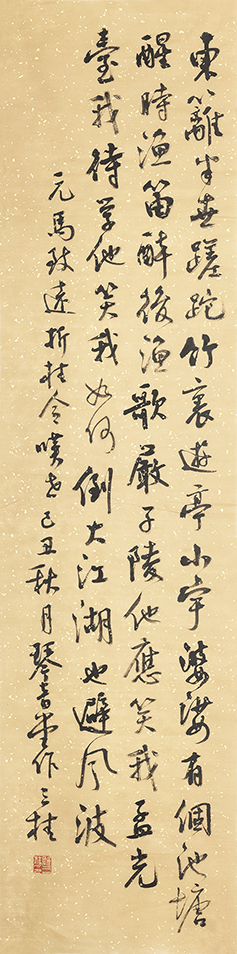 東籬半世蹉跎竹裏遊亭小宇婆娑有個池塘
醒時漁笛醉後漁歌嚴子陵他應笑我孟光
臺我待學他笑我如何倒大江湖也避风波
元馬致遠折桂令嘆世己丑秋月琴音堂作三桂